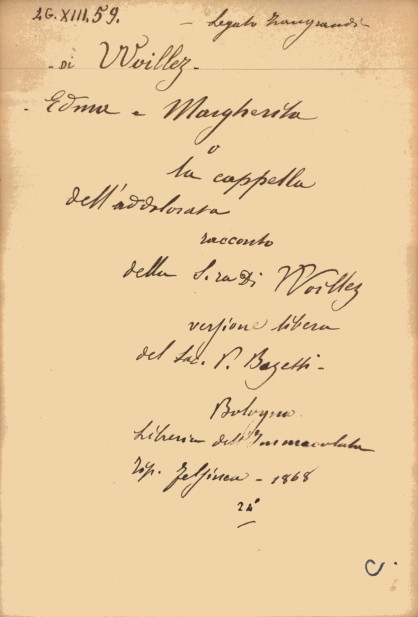 2G.XIII.59. - Legato Zangrandi
- Di Woillez -
- Edma e Margherita
o
la cappella
dell'addolorata
racconto
della S.ra Di Woillez
versione libera
del Sac. P. Bazetti -
Bologna
Libreria dell'Immacolata
Tip. Felsinea - 1868
24°
C.